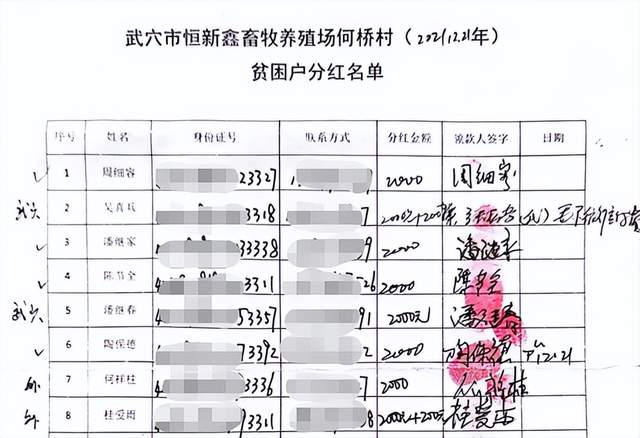 武穴市恒新鑫畜牧养殖场何桥村（2021.12.21年）
贫困户分红名单
序号 姓名 身份证号 联系方式 分红金额 领款人签字 日期
✓ 1 周细容 23327 2000 周细容
武穴 2 吴真兵 3318 2000元+200
✓ 3 潘继家 33338 9 2000 潘继家
✓ 4 陈节全 4 3311 26 2000 陈节全
武穴 5 潘继春 53357 91 2000元 潘继春
✓ 6 陶保德 73392 2 2000 陶保德 12.21
外 7 何祥柱 3336 7 2000 何祥柱
外 8 桂受雨 93311 8 2000元+200元 桂受雨